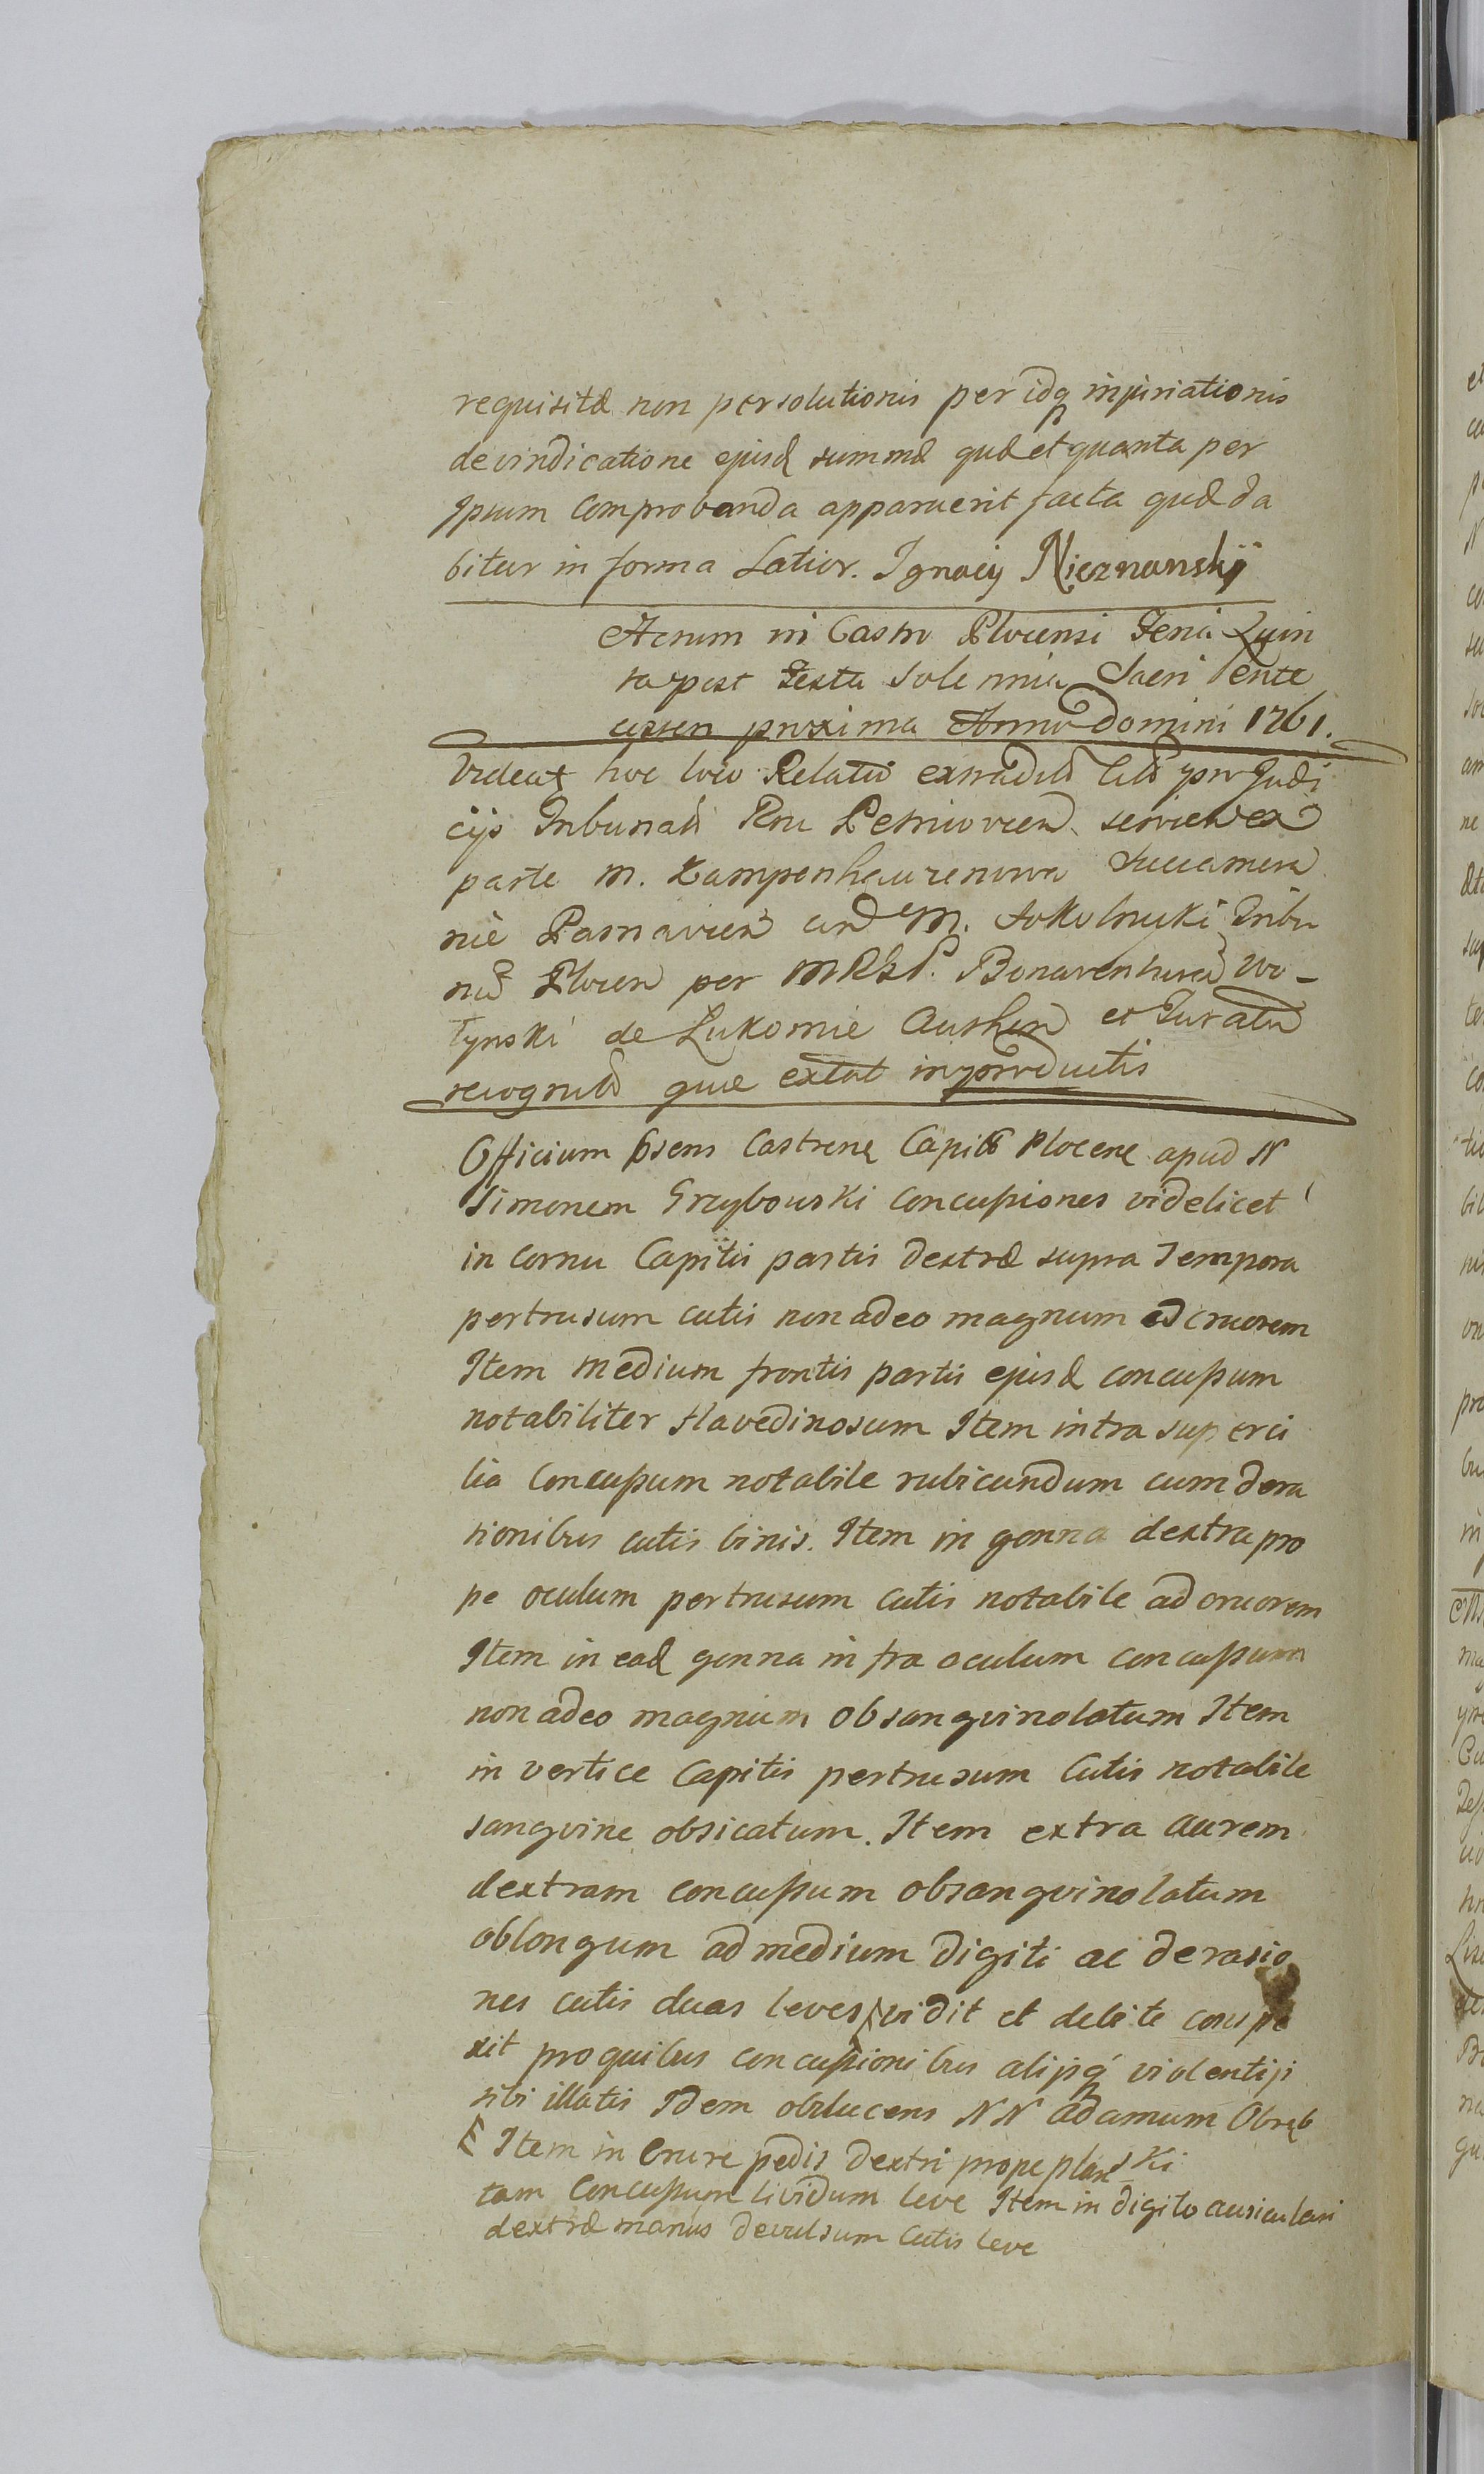 requisitæ non persolutionis per idq injuriationis
devindicatione ejusd summæ quæ et quanta per
Ipsum comprobanda apparuerit facta quæ da
bitur in forma Latior. Ignacij Nieznanskij
Actum in Castro Plocensi Feria Quin
ta post Festa Solemnia Sacri Pente
costen proxima Anno Domini 1761.
Videat hoc loco Relatio extradit pro Judi
cijs Tribunalis Rni Petricovien servien ex
parte M. Kampenhauzenowa Succamera
rie Parnavien M. Sokolnicki Tribu
Plocen per MRSP. Bonaventura Wo-
łynski de Lukomie Authen et Juratu
recognit quæ extat in productis
Officium Psens Castrens Capit Plocens apud N
Simonem Grzybowski concussiones videlicet
in cornu Capitis partis dextræ supra Tempora
pertrusum cutis non adeo magnum ad cruorem
Item medium frontis partis ejusd concussum
notabiliter flavedinosum Item intra superci
lia concussum notabile rubicundum cum dera
sionibus cutis binis. Item in genna dextra pro
pe oculum pertrusum cutis notabile ad cruorem
Item in ead genna infra oculum concussum
non adeo magnum obsangvinolatum Item
in vertice Capitis pertrusum Cutis notabile
sangvine obsicatum. Item extra aurem
dextram concussum obsangvinolatum
oblongum ad medium digiti ac derasio
nes cutis duas leves vidit et debite conspe
xit pro quibus concussionibus alijsq violentijs
sibi illatis Idem obducens NN Adamum Obręb
ski
Item in Crure pedis dextri prope plan
tam Concussum lividum leve Item in digito auriculari
dextræ manus devulsum Cutis leve